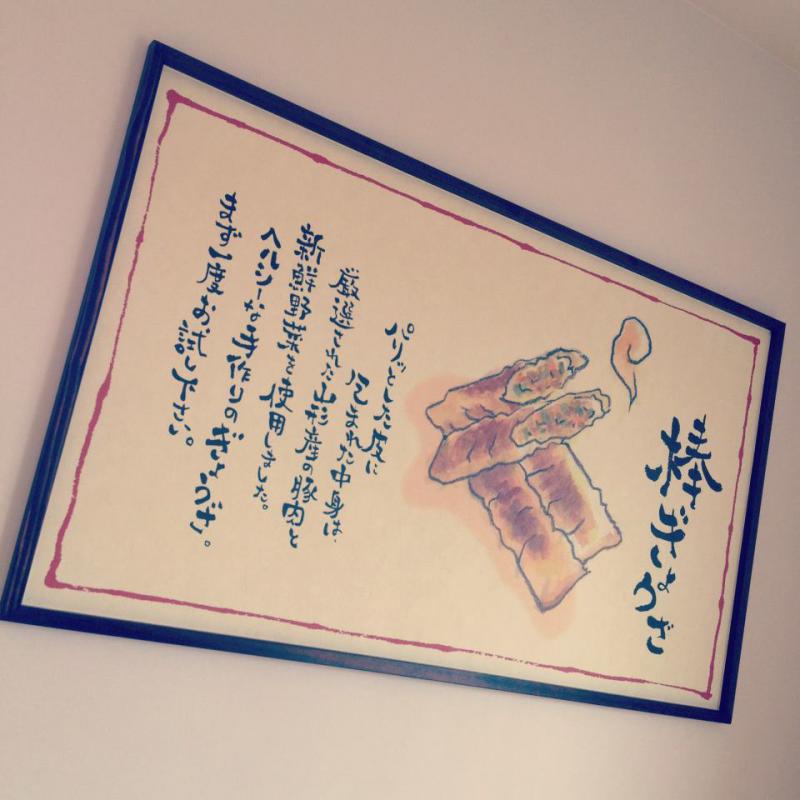 棒ぎょうざ
パリッとした皮に
包まれた中身は、
厳選された山形産の豚肉と
新鮮野菜を使用しました。
ヘルシーな手作りのぎょうざ。
まず一度お試し下さい。